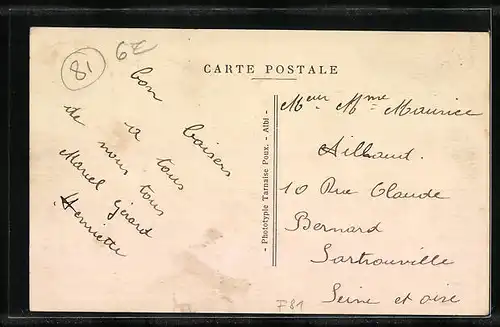 81
6€
CARTE POSTALE
bon baisers
a tous
de nous tous
Marcel Gérard
Henriette
- Phototypie Tarnaise Poux. - Albi -
Meur. Mme Maurice
Aillaud.
10 Rue Claude
Bernard
Sartrouville
Seine et oise
F81